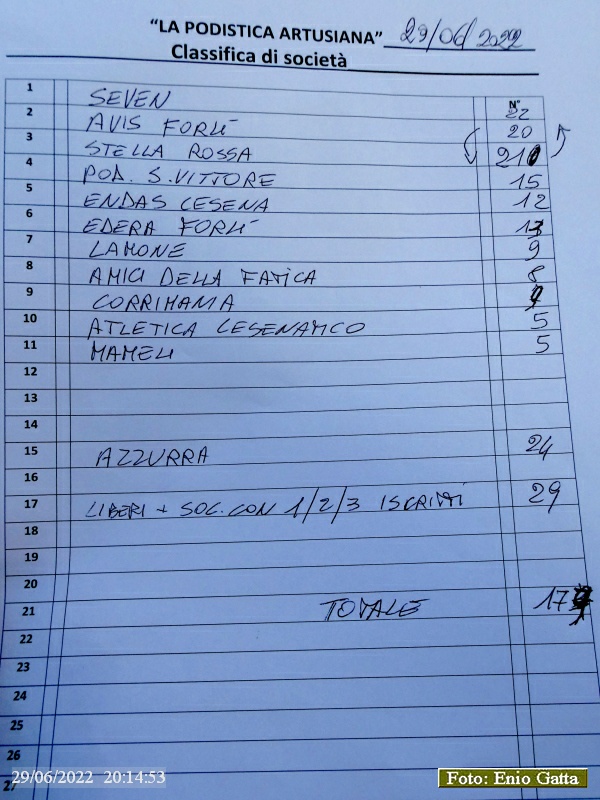 “LA PODISTICA ARTUSIANA” 29/06/2022
Classifica di società
N°
1 SEVEN 22
2 AVIS FORLÌ 20
3 STELLA ROSSA
4 POD. S. VITTORE 15
5 ENDAS CESENA 12
6 EDERA FORLÌ
7 LAMONE 9
8 AMICI DELLA FATICA 8
9 CORRIMANIA
10 ATLETICA CESENATICO 5
11 MAMELI 5
12
13
14
15 AZZURRA 24
16
17 LIBERI + SOC. CON 1/2/3 ISCRITTI 29
18
19
20
21 TOTALE
22
23
24
25
26
27
29/06/2022 20:14:53
Foto: Enio Gatta